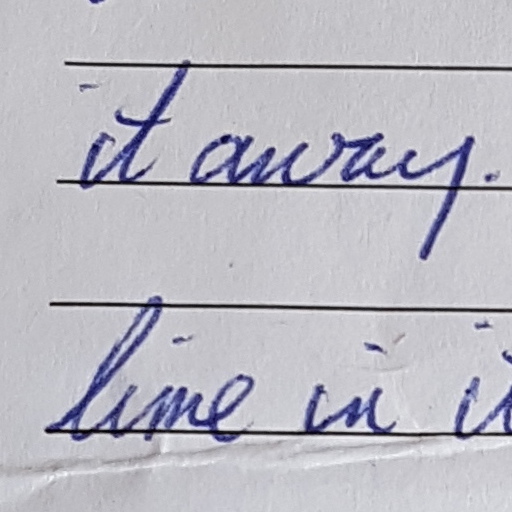 it away.
lime in it